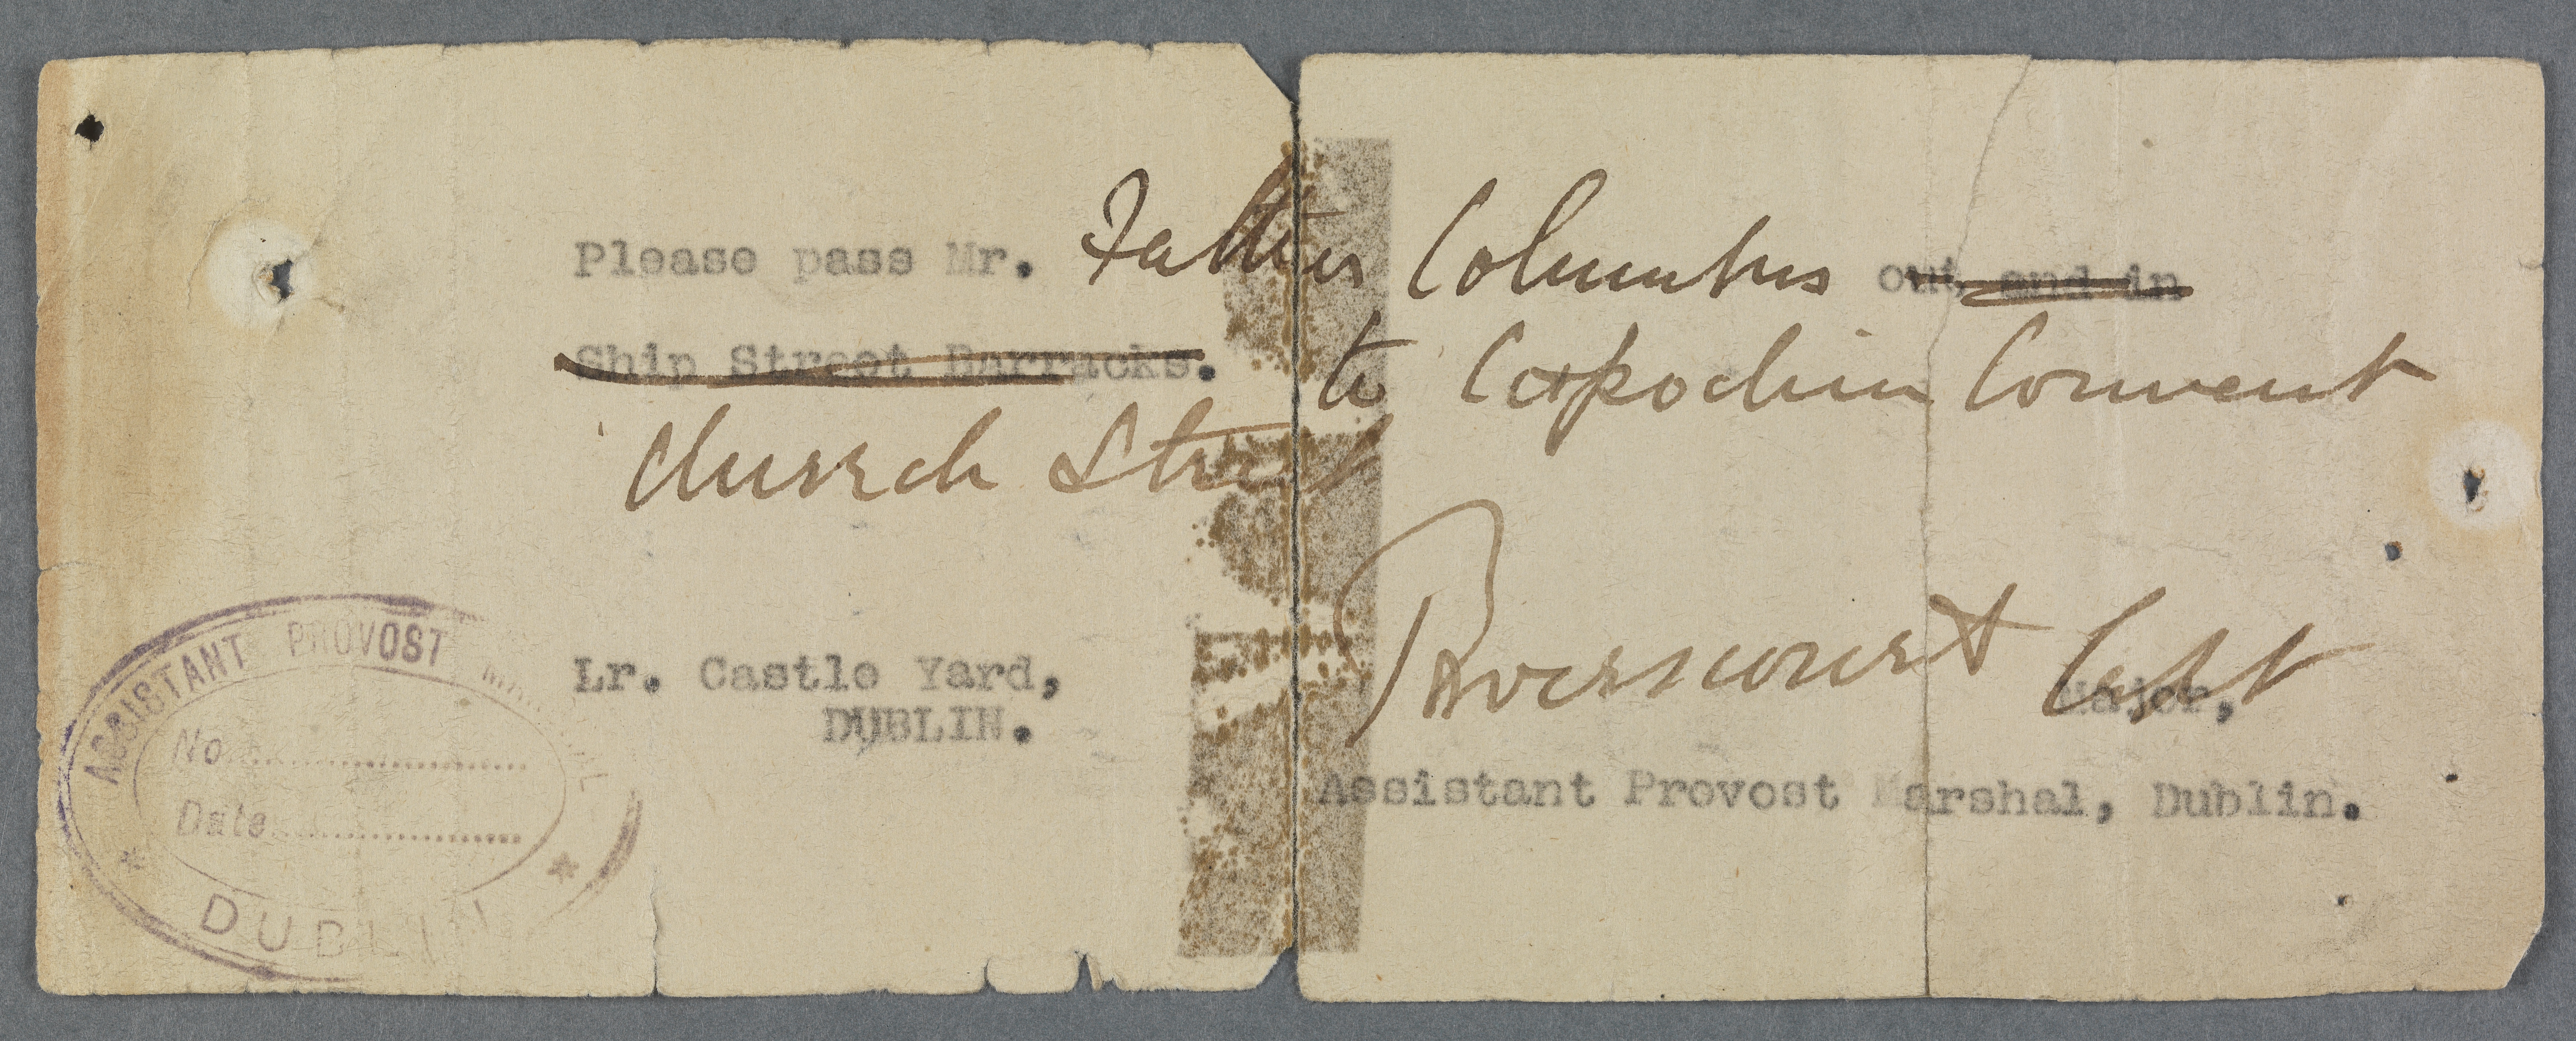 Please pass Mr. Father Columbus out and in
Ship Street Barracks. to Capochin Convent
Church Street
Powerscourt Capt
Lr. Castle Yard, Major,
DUBLIN.
Assistant Provost Marshal, Dublin.
ASSISTANT PROVOST MARSHAL
No
Date
* DUBLIN *